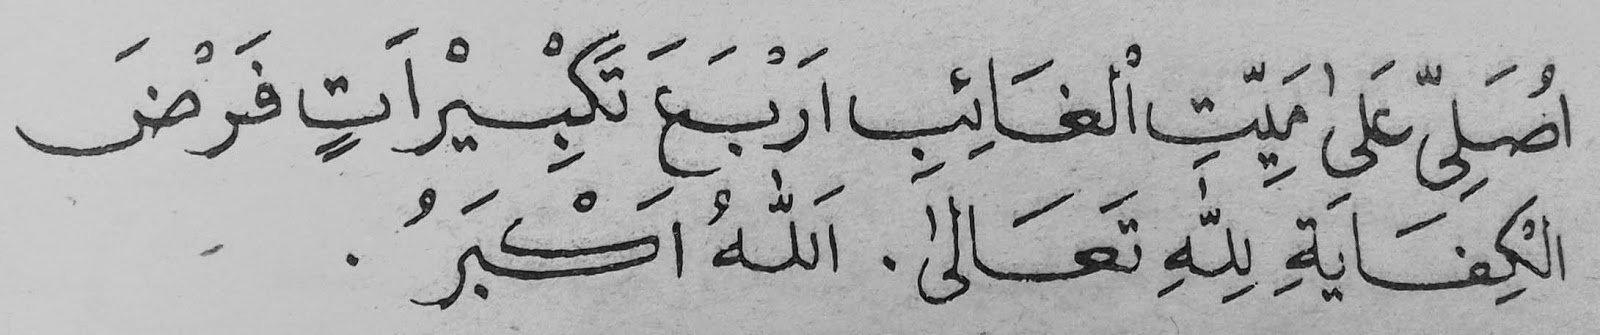 اُصَلِّىّ عَلَىٰ مَيِّتِ الْغَائِبِ اَرْبَعَ تَكْبِيْرَاتٍ فَرْضَ
الْكِفَايَةِ لِلّٰهِ تَعَالىٰ. اَللّٰهُ اَكْبَرُ.